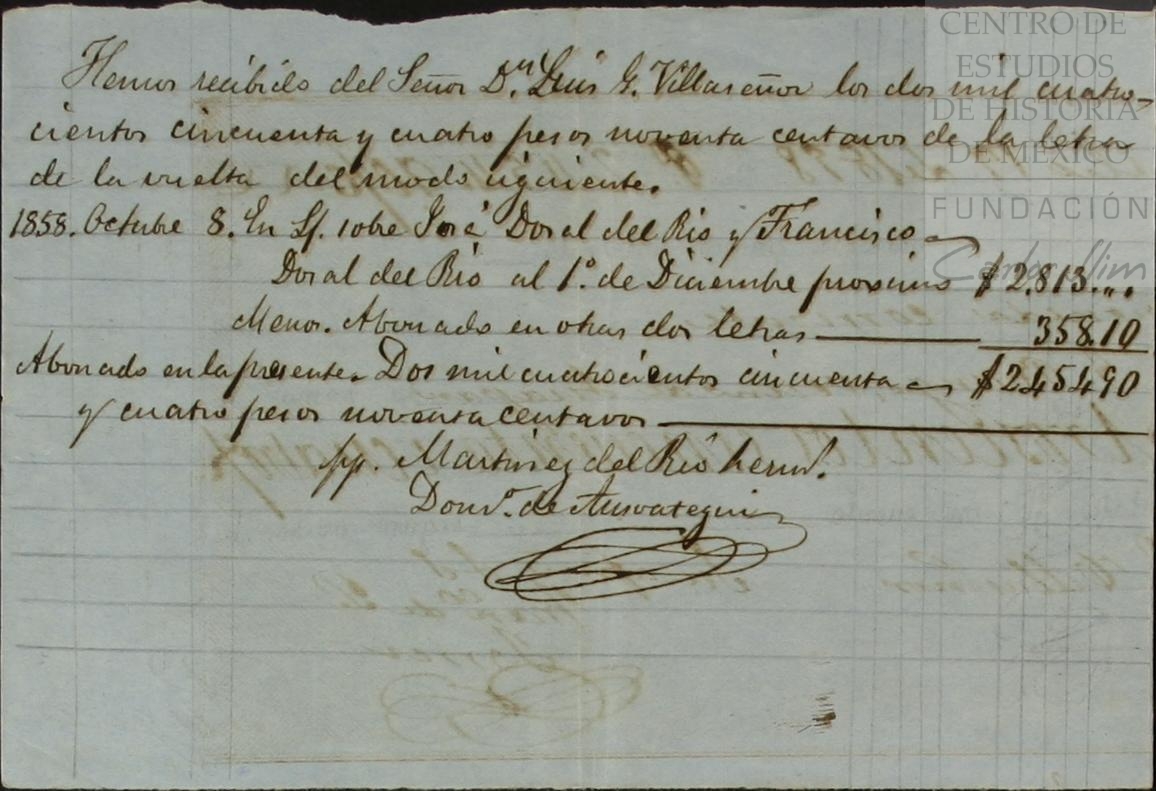 CENTRO DE
ESTUDIOS
DE HISTORIA
DE MÉXICO
FUNDACIÓN
Carlos Slim
Hemos recibido del Señor Dn. Luis G. Villaseñor los dos mil cuatro-
cientos cincuenta y cuatro pesos noventa centavos de la letra
de la vuelta del modo siguiente.
1858. Octubre 8. En Lf. sobre José Doral del Rio y Francisco
Doral del Rio al 1º. de Diciembre proximo $2.813...
Menos. Abonado en otras dos letras 358.10
Abonado en la presente. Dos mil cuatrocientos cincuenta $245490
y cuatro pesos noventa centavos
pp. Martinez del Rio herms.
de